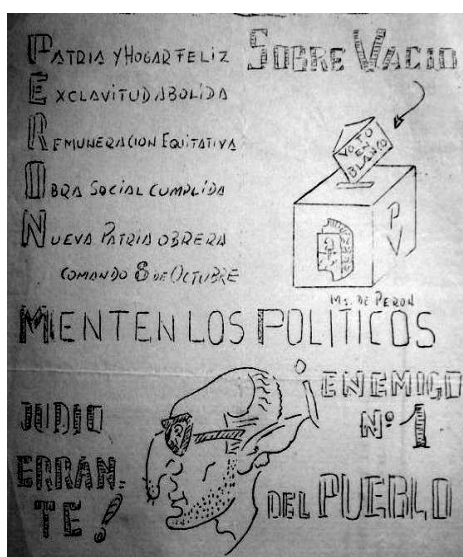 PATRIA Y HOGAR FELIZ
EXCLAVITUD ABOLIDA
REMUNERACION EQUITATIVA
OBRA SOCIAL CUMPLIDA
NUEVA PATRIA OBRERA
COMANDO 8 DE OCTUBRE
SOBRE VACIO
VOTO
EN
BLANCO
P
V
Ms. DE PERON
MIENTEN LOS POLITICOS
JUDIO
ERRAN.
TE!
¡ENEMIGO
Nº 1
DEL PUEBLO